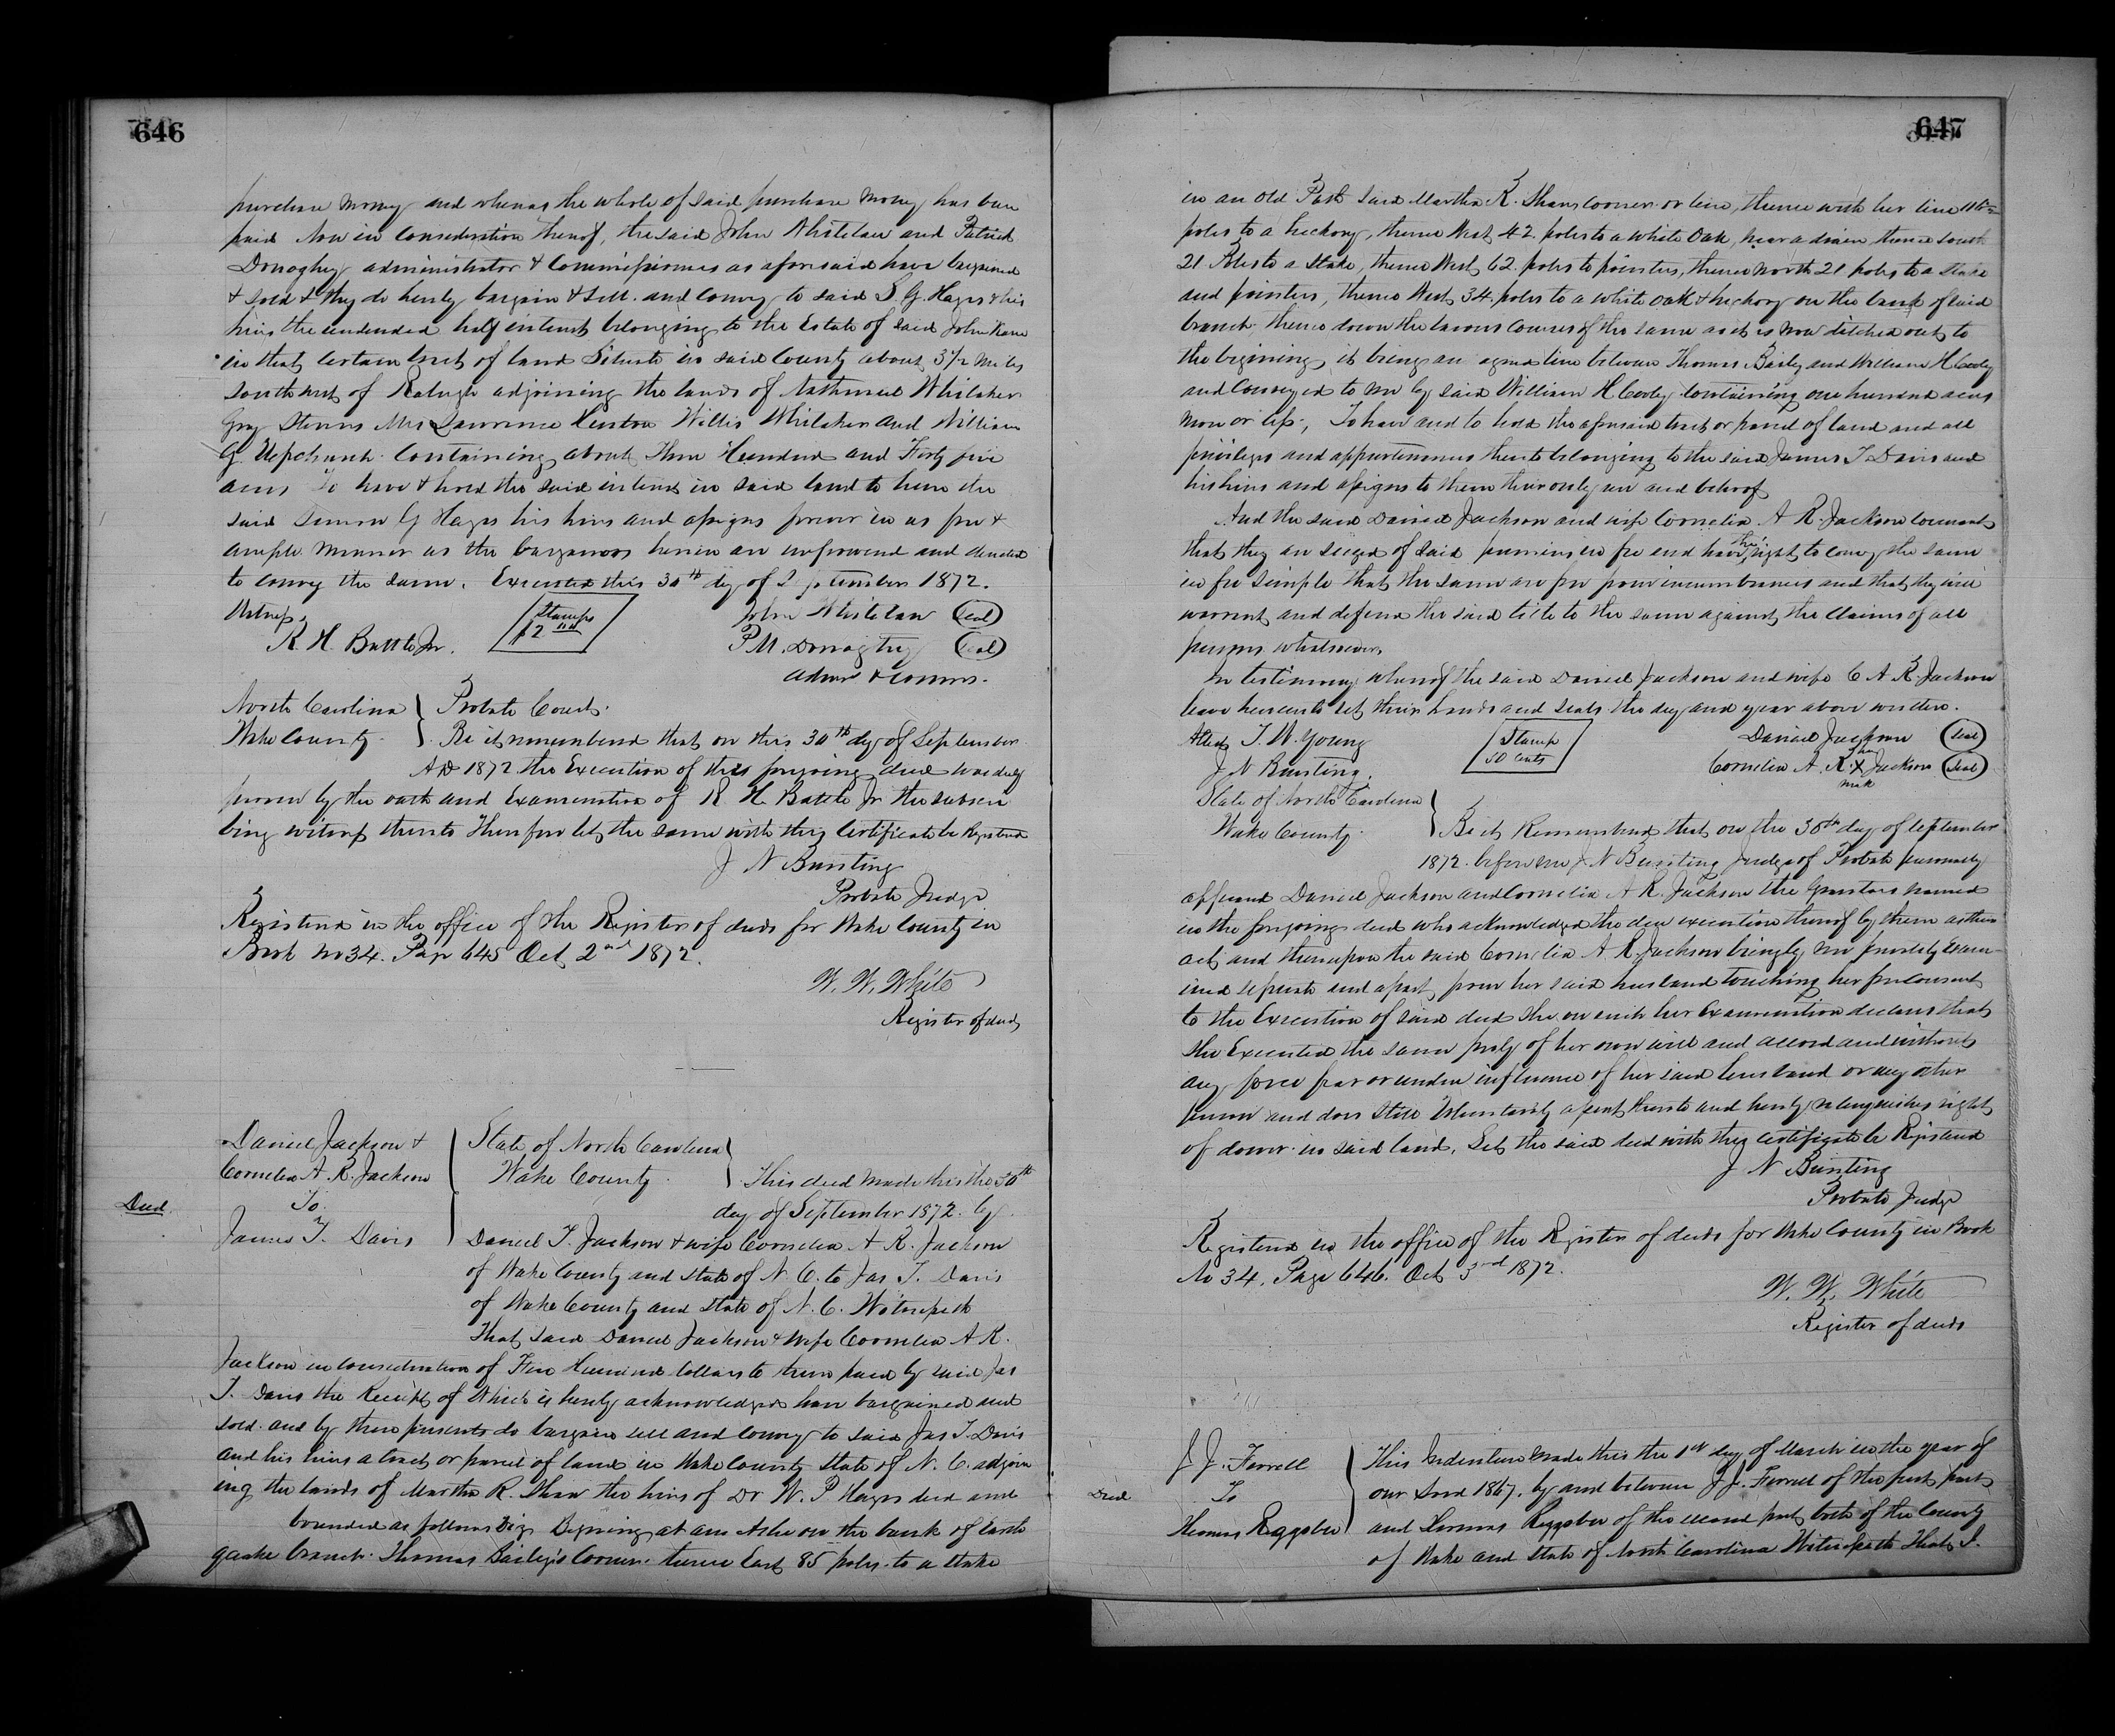 646
purchase money and whereas the whole of said purchase money has been
paid Now in Consideration thereof, the said John Whitelaw and Patrick
Donaghey administrator & Commissioners as aforesaid have bargained
& sold & they do hereby bargain & sell and convey to said S. G. Hayes & his
heirs the undivided half interest belonging to the Estate of said John Kane
in that certain tract of land Situate in said County about 3 1/2 miles
South west of Raleigh adjoining the lands of Nathaniel Whitaker
Gray Stevens Mrs Lawrence Hinton Willis Whitaker and William
G. Upchurch Containing about Three Hundred and Forty five
acres To have & hold the said interest in said land to him the
said Simeon G Hayes his heirs and assigns forever in as free &
ample manner as the bargainors herein are empowered and directed
to convey the same. Executed this 30th dy of September 1872.
Witness John Whitelaw (Seal)
R. H. Battle Jr. Stamps $2 00 P M. Donaghey (Seal)
Admr & Comrs.
North Carolina } Probate Court.
Wake County } Be it remembered that on this 30th dy of September
AD 1872 the Execution of this foregoing deed was duly
proven by the oath and Examination of R. H. Battle Jr the subscri
bing witness thereto Therefore let the same with this Certificate be Registered
J N Bunting
Probate Judge
Registered in the office of the Register of deeds for Wake County in
Book No 34. Page 645 Oct 2nd 1872.
W. W. White
Register of deeds
Deed.
Daniel Jackson &
Cornelia A. R. Jackson
To
James T. Davis
State of North Carolina
Wake County } This deed made this the 30th
day of September 1872. by
Daniel T. Jackson & wife Cornelia A R. Jackson
of Wake County and State of N C. to Jas T. Davis
of Wake County and State of N. C. Witnesseth
That said Daniel Jackson & Wife Cornelia A R.
Jackson in consideration of Five Hundred dollars to them paid by said Jas
T. Davis the Receipt of Which is hereby acknowledged have bargained and
sold and by these presents do bargain sell and convey to said Jas T. Davis
and his heirs a tract or parcel of land in Wake County State of N. C. adjoin
ing the lands of Martha R. Shaw the heirs of Dr W. P Hayes decd and
bounded as follows Viz Begining at an Ashe on the bank of Earth
quake branch Thomas Bailey's Corner thence East 85 poles to a stake
647
in an old Path said Martha R. Shaws corner or line, thence with her line
poles to a hickory, thence West 42 poles to a white Oak, near a drain thence South
21 Poles to a Stake, thence West 62 poles to pointers, thence North 21 poles to a Stake
and pointers, thence West 34 poles to a white oak & hickory on the bank of said
branch, thence down the various courses of the same as it is now ditched out to
the begining it being an agreed line between Thomas Bailey and William H Cooley
and Conveyed to me by said William H Cooley Containing one hundred acres
more or less, To have and to hold the aforesaid tract or parcel of land and all
privileges and appurtenances thereto belonging to the said James T Davis and
his heirs and assigns to them their only use and behoof
And the said Daniel Jackson and wife Cornelia A R. Jackson covenants
that they are seized of said premises in fee and have the right to convey the same
in fee simple that the same are free from incumbrances and that they will
warrant and defend the said title to the same against the claims of all
persons whatsoever.
In testimony whereof the said Daniel Jackson and wife C A R Jackson
have hereunto set their hands and seals the day and year above written.
Attest T. W. Young Stamp 50 cents Daniel Jackson (Seal)
J N Bunting. Cornelia A. R. her X mark Jackson (Seal)
State of North Carolina
Wake County } Be it Remembered that on the 30th day of September
1872. before me J N Bunting Judge of Probate personally
appeared Daniel Jackson and Cornelia A R. Jackson the Grantors named
in the foregoing deed who acknowledged the due execution thereof by them as their
act and thereupon the said Cornelia A R. Jackson being by me privately exam
ined separate and apart from her said husband touching her free consent
to the Execution of said deed she on such her Examination declares that
she Executed the same freely of her own will and accord and without
any force fear or undue influence of her said husband or any other
person and does still Voluntarily assent thereto and hereby relinquishes right
of dower in said land. Let the said deed with this Certificate be Registered
J N Bunting
Probate Judge
Registered in the office of the Register of deeds for Wake County in Book
No 34. Page 646. Oct 3rd 1872.
W. W. White
Register of deeds
Deed
J. J. Ferrell
To
Thomas Riggsbee
This Indenture made this the 1st day of March in the year of
our Lord 1867. by and between J J. Ferrell of the first part
and Thomas Riggsbee of the second part both of the County
of Wake and State of North Carolina Witnesseth That J.